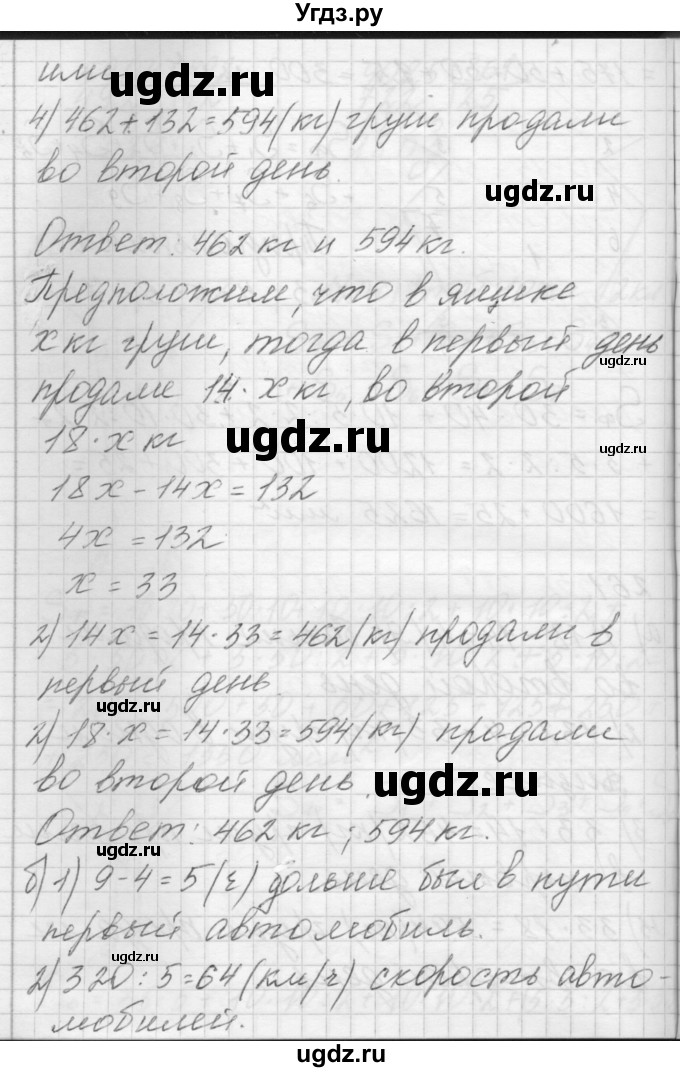 Угдз.ру
или
ugdz.ru
4) 462+132=594(кг) груш продали
во второй день.
ugdz.ru
Ответ: 462 кг и 594 кг.
Предположим, что в ящике
x кг груш, тогда в первый день
ugdz.ru
продали 14·x кг, во второй
18·x кг
ugdz.ru
ugdz.ru
18x - 14x = 132
4x = 132
x = 33
2) 14x = 14·33 = 462(кг) продали в
первый день.
ugdz.ru
2) 18·x = 14·33 = 594(кг) продали
во второй день.
ugdz.ru
Ответ: 462 кг; 594 кг.
ugdz.ru
б) 1) 9-4=5(ч) дольше был в пути
первый автомобиль.
ugdz.ru
2) 320:5=64(км/ч) скорость авто-
мобилей.
ugdz.ru